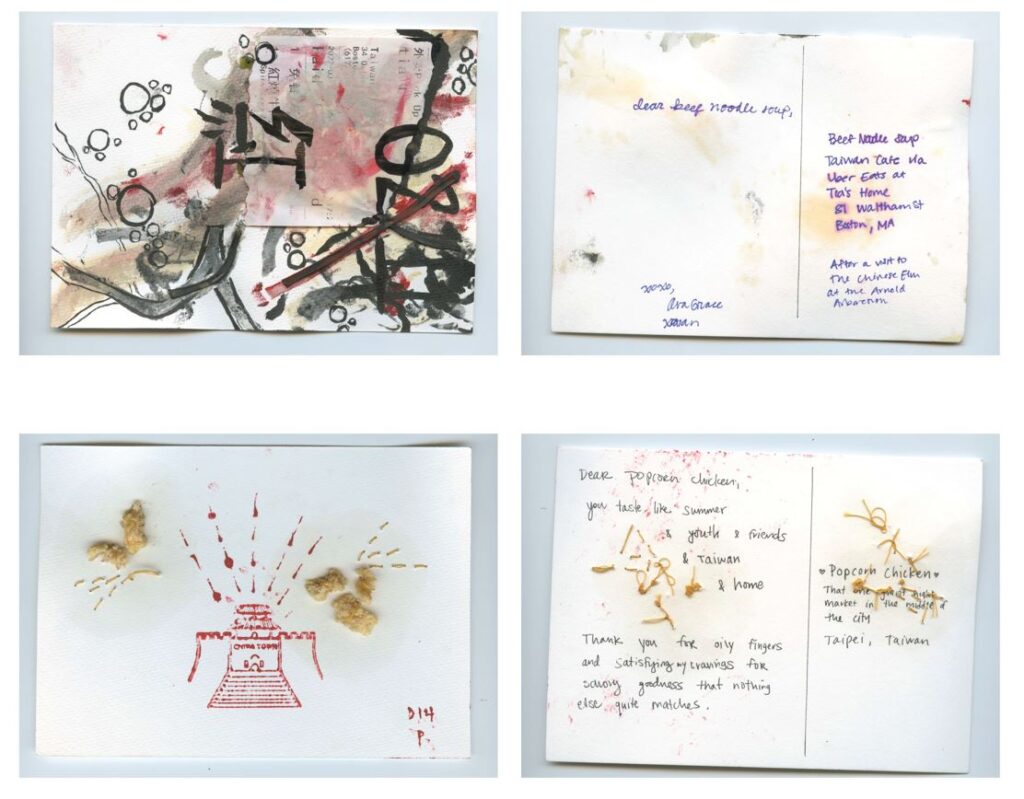 Taiwan
紅
dear beef noodle soup,
xoxo,
Grace
Beef Noodle Soup
Taiwan Cafe via
Uber Eats at
Tia's Home
81 Waltham St
Boston, MA
After a visit to
the Chinese Elm
at the Arnold
Arboretum
CHINATOWN
D14
P.
Dear popcorn chicken,
you taste like summer
& youth & friends
& Taiwan
& home
Thank you for oily fingers
and satisfying my cravings for
savory goodness that nothing
else quite matches.
♥ Popcorn Chicken ♥
That one giant night
market in the middle of
the city
Taipei, Taiwan